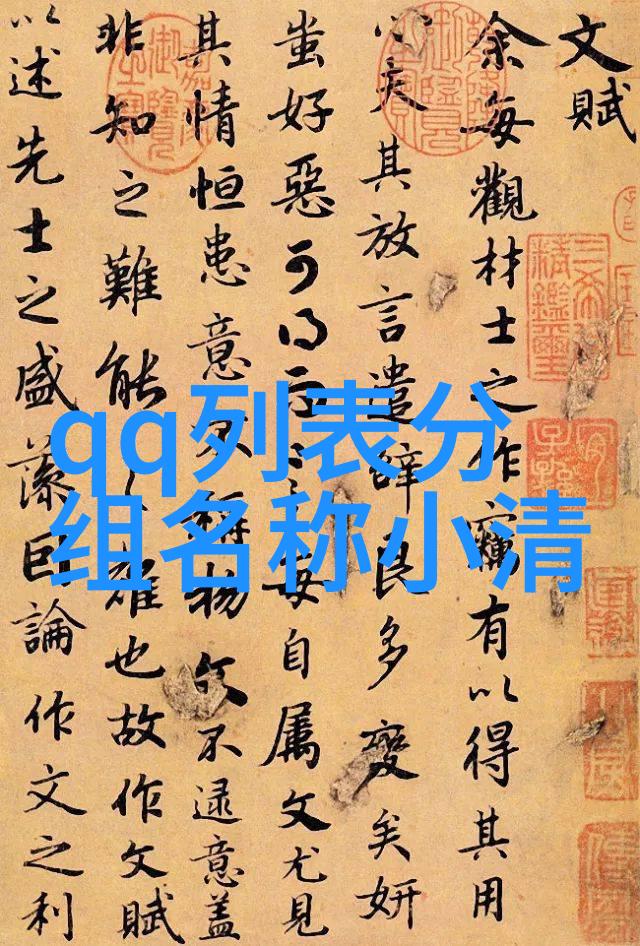 文賦
余每觀材士之作竊有以得其用
心夫其放言遣辭良多變矣妍
蚩好惡可得而言每自属文尤見
其情恒患意不稱物文不逮意蓋
非知之難能之難也故作文賦
以述先士之盛藻因論作文之利
qq列表分
组名称小清
嘉慶御覽之寶
三希堂精鑑璽
宜子孫